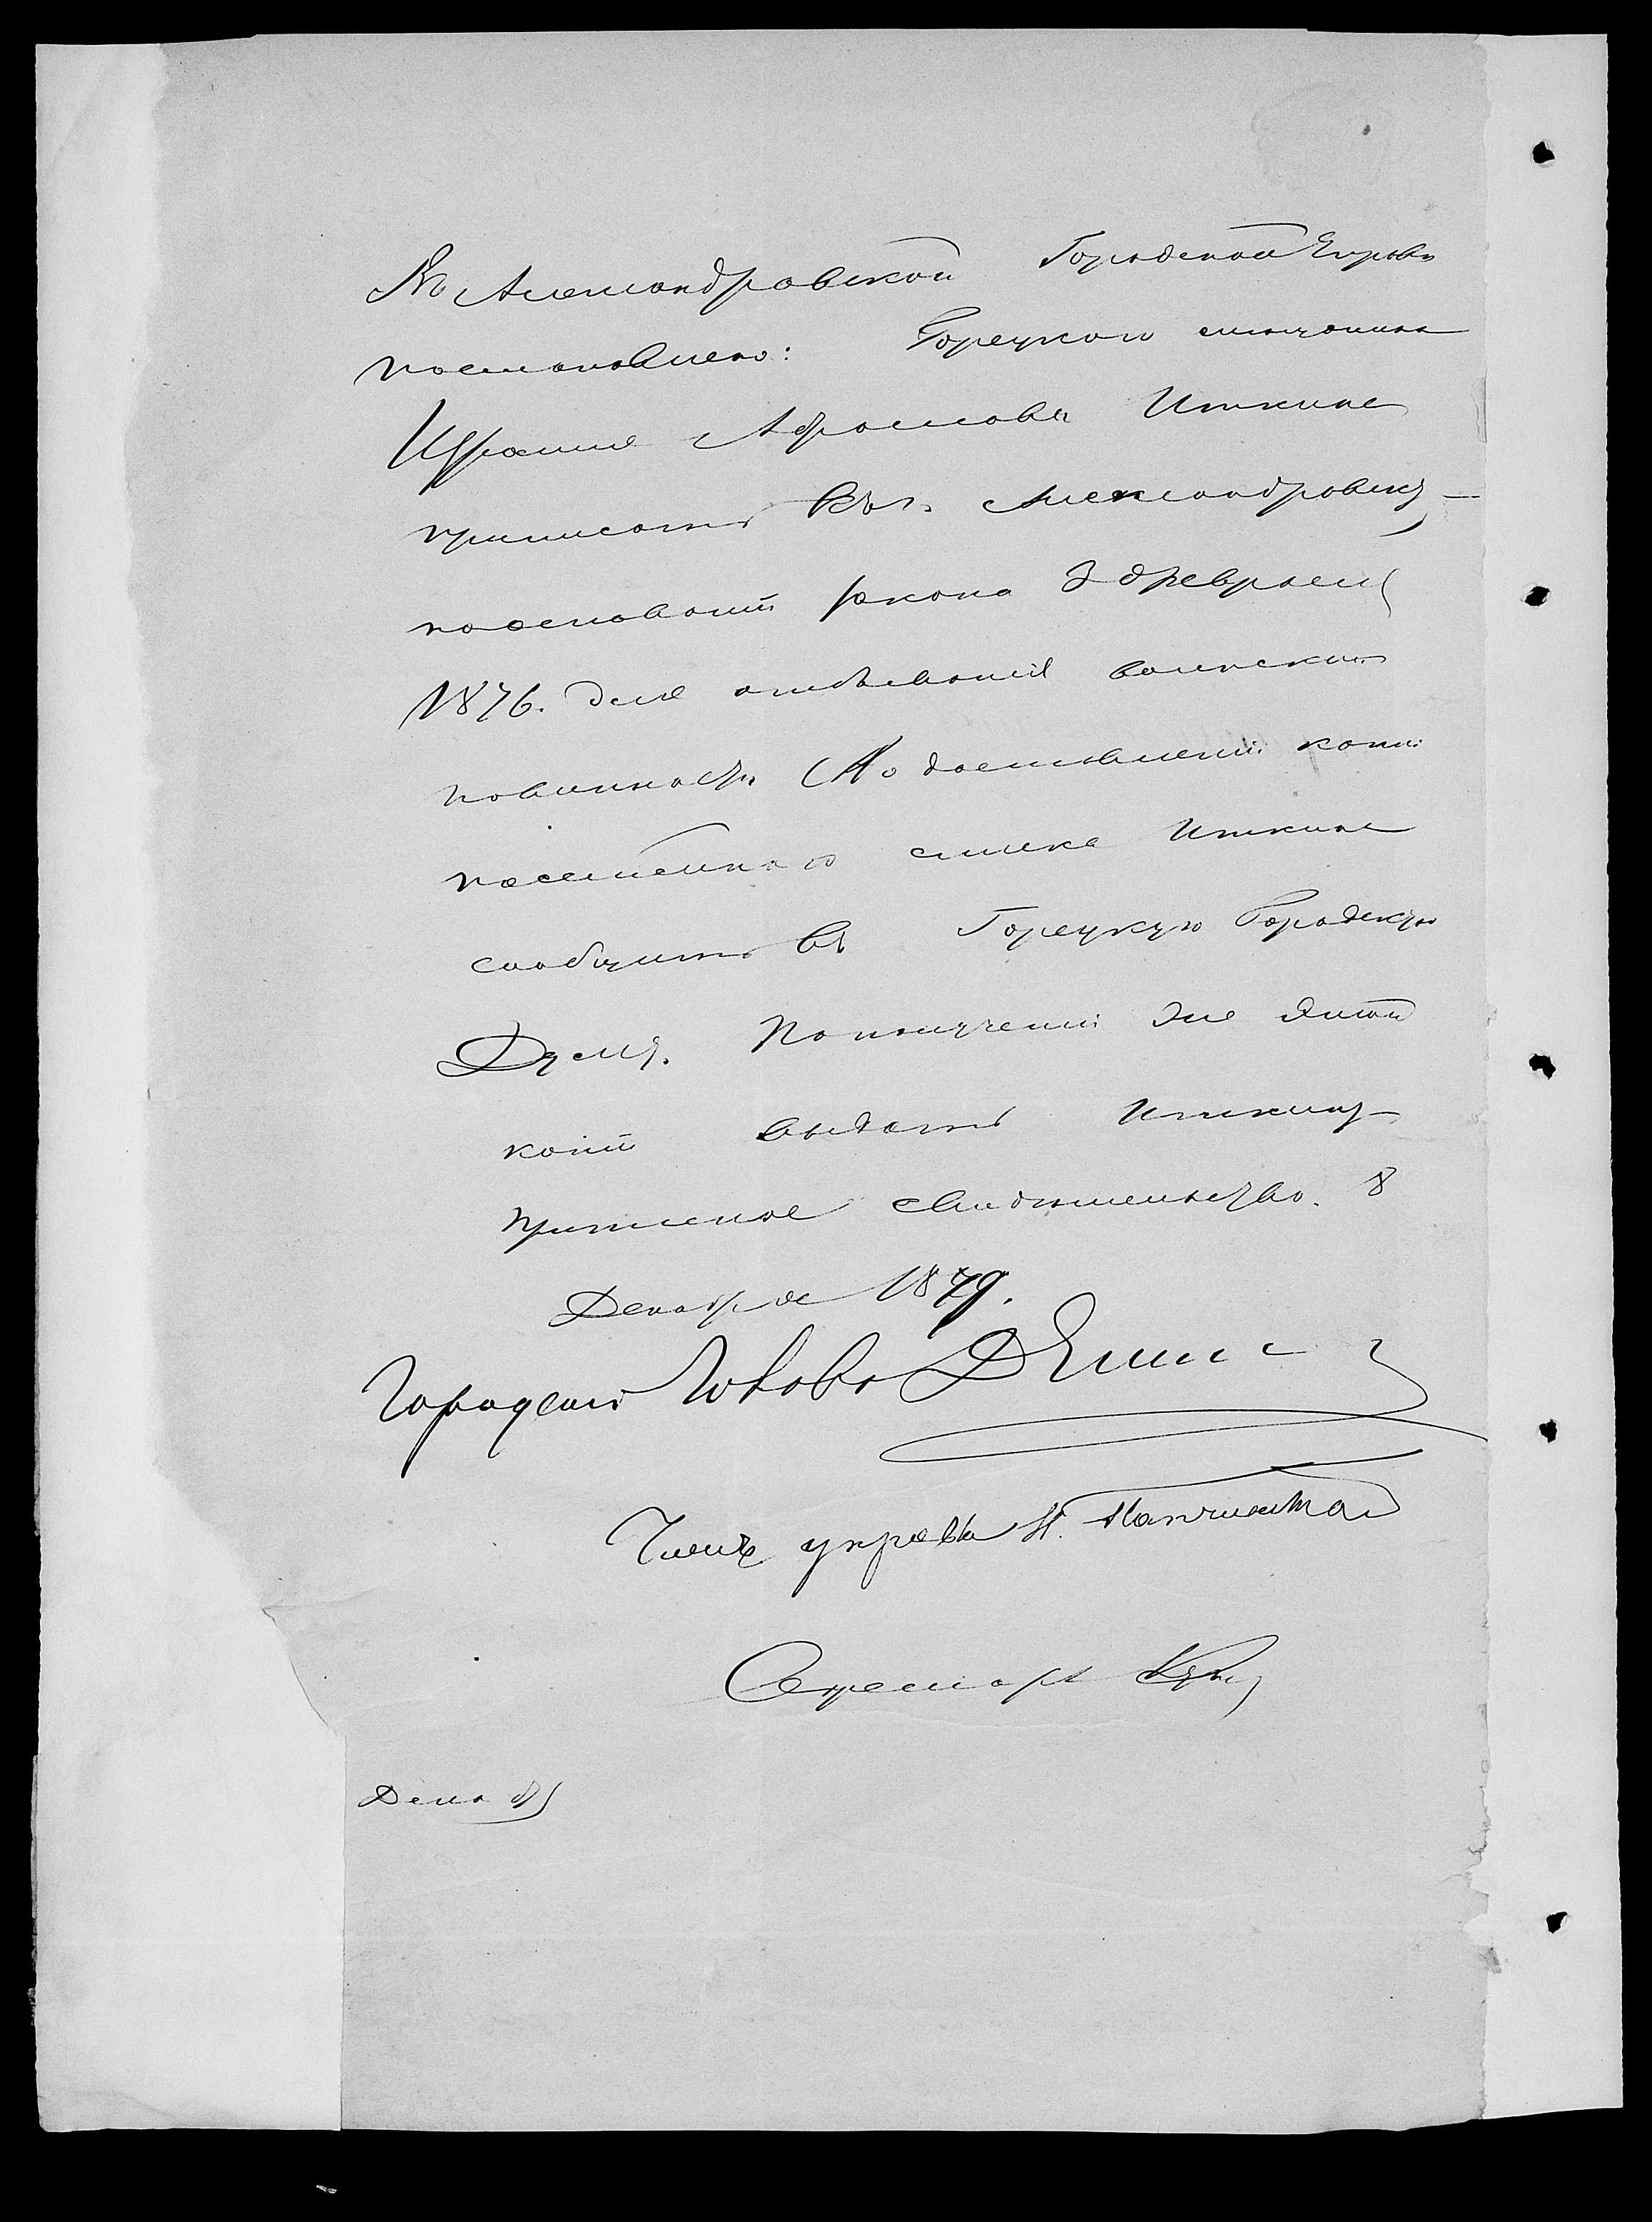 Въ Александровской Городской Управѣ
постановлено: Горецкого мѣщанина
Израиля Абрамова Иткина
приписать къ г. Александровску
на основаніи закона 3 февраля
1876. для отбыванія воинской
повинности. А о доставленіи копіи
посемейного списка Иткина
сообщить въ Горецкую Городскую
Думу. По полученіи же этой
копіи выдать Иткину
приписное свидѣтельство. 8
Декабря 1879.
Городской Голова
Членъ управы Н.
Секретарь